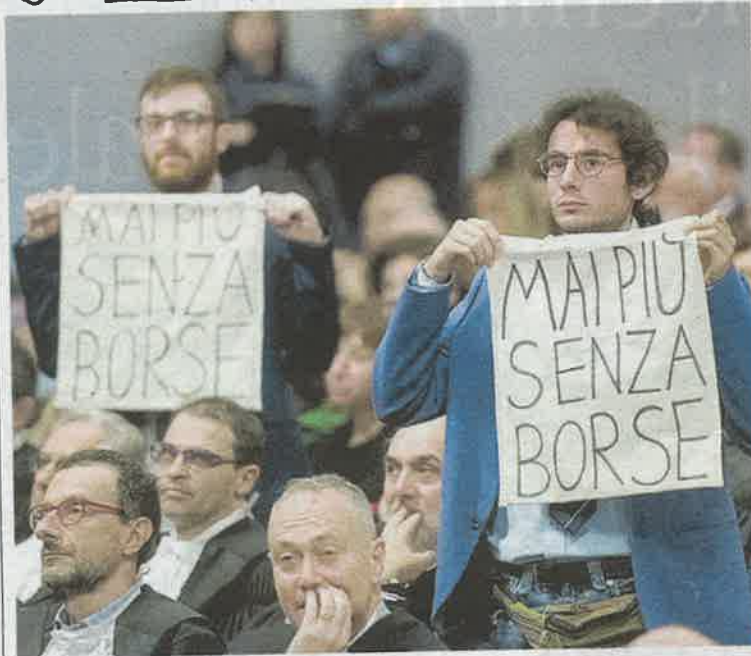 MAI PIÙ
SENZA
BORSE
MAI PIÙ
SENZA
BORSE